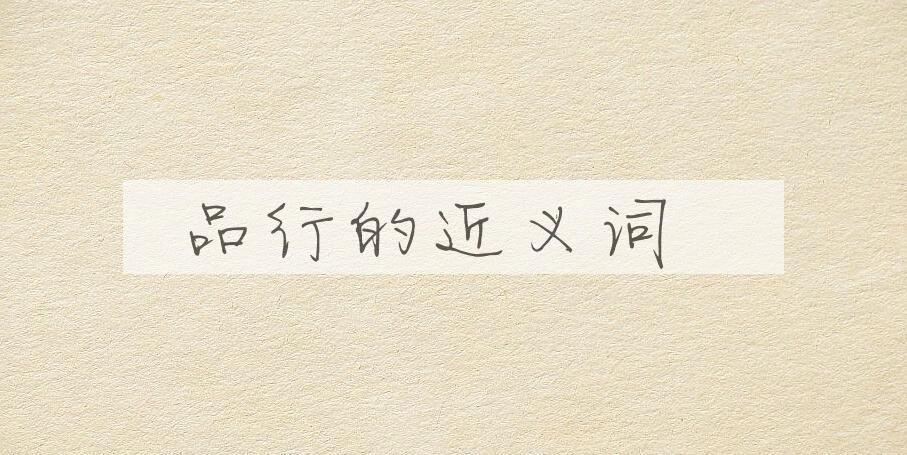 品行的近义词